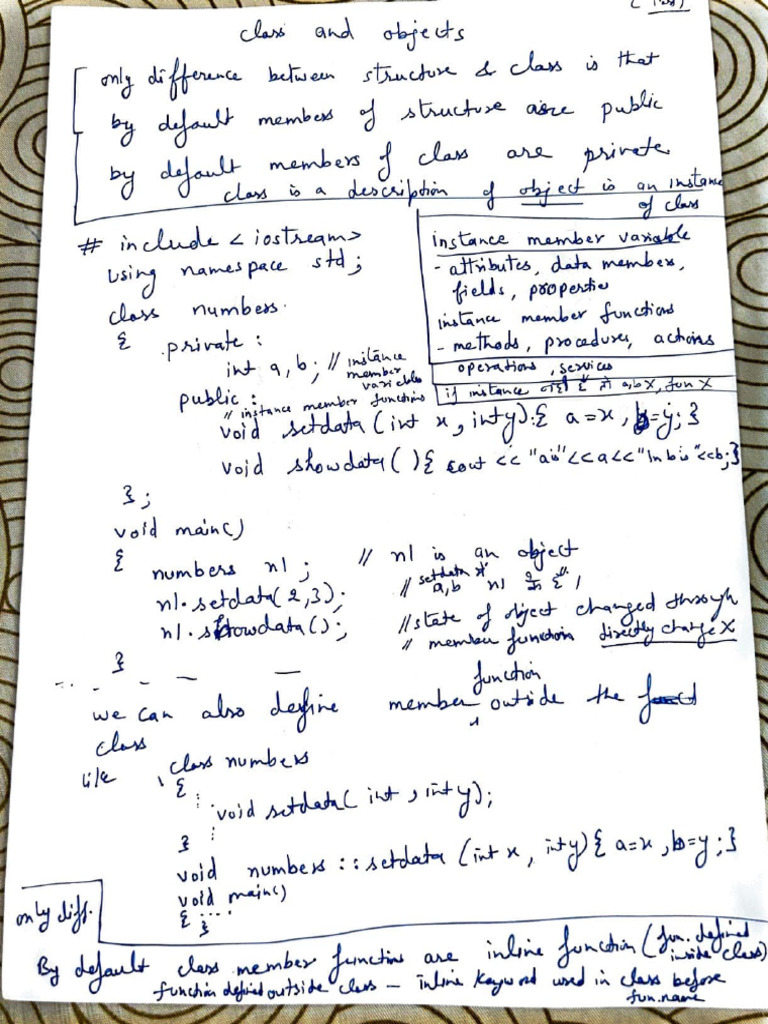 class and objects
only difference between structure & class is that
by default members of structure are public
by default members of class are private
class is a description of object is an instance
of class
# include < iostream>
using namespace std;
class numbers
{ private :
int a, b; // instance
member
variables
public :
// instance member functions
void setdata (int x, int y) { a=x, b=y; }
void showdata ( ) { cout << "a is" << a << "\n b is" << b; }
};
instance member variable
- attributes, data members,
fields, properties
instance member functions
- methods, procedures, actions
operations, services
if instance a,b X, fun X
void main()
{
numbers n1 ; // n1 is an object
n1.setdata(2,3); // setdata a,b n1
n1.showdata(); // state of object changed through
// member function directly change X
}
we can also define member function outside the
class
like class numbers
{
void setdata( int , int y);
}
void numbers :: setdata (int x, int y) { a=x, b=y; }
void main()
{ ....
}
only diff.
By default class member functions are inline function (fun. defined
inside class)
function defined outside class - inline keyword used in class before
fun.name